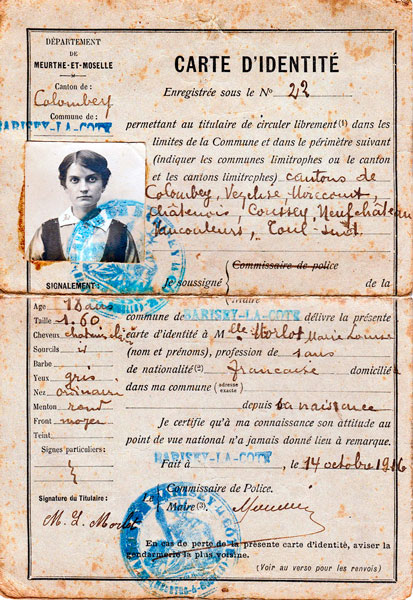 DÉPARTEMENT
DE
MEURTHE-ET-MOSELLE
Canton de :
Colombey
Commune de :
BARISEY-LA-COTE
SIGNALEMENT
Age 18 ans
Taille 1.60
Cheveux chatain
Sourcils id
Barbe
Yeux gris
Nez ordinaire
Menton rond
Front moyen
Teint
Signes particuliers :
Signature du Titulaire :
M. L. Morlot
CARTE D'IDENTITÉ
Enregistrée sous le N° 22
permettant au titulaire de circuler librement (1) dans les
limites de la Commune et dans le périmètre suivant
(indiquer les communes limitrophes ou le canton
et les cantons limitrophes) cantons de
Colombey, Vezelise, Mirecourt,
Châtenois, Coussey, Neufchâteau
Vaucouleurs, Toul-Sud.
Je soussigné Commissaire de police de la
Maire
commune de BARISEY-LA-COTE délivre la présente
carte d'identité à Mlle Morlot Marie Louise
(nom et prénoms), profession de sans
de nationalité (2) francaise domicilié
dans ma commune (adresse exacte)
depuis sa naissance
Je certifie qu'à ma connaissance son attitude au
point de vue national n'a jamais donné lieu à remarque.
BARISEY-LA-COTE
Fait à , le 14 octobre 1916
Le Commissaire de Police.
Maire (3)
En cas de perte de la présente carte d'identité, aviser la
gendarmerie la plus voisine.
(Voir au verso pour les renvois)